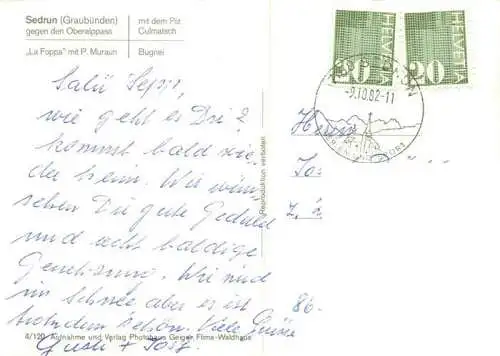 Sedrun (Graubünden)
gegen den Oberalppass
mit dem Piz
Culmatsch
„La Foppa" mit P. Muraun
Bugnei
Salü Sepp,
wie geht es Dir?
kommst bald wie-
der heim. Wir wün-
schen Dir gute Geduld
und recht baldige
Genesung. Wir sind
im Schnee aber es ist
trotzdem schön. Viele Grüsse
Gusti +
Reproduktion verboten
6/120 Aufnahme und Verlag Photohaus Geiger Flims-Waldhaus
20 HELVETIA
HELVETIA 20
-9.10.82-11
Herrn